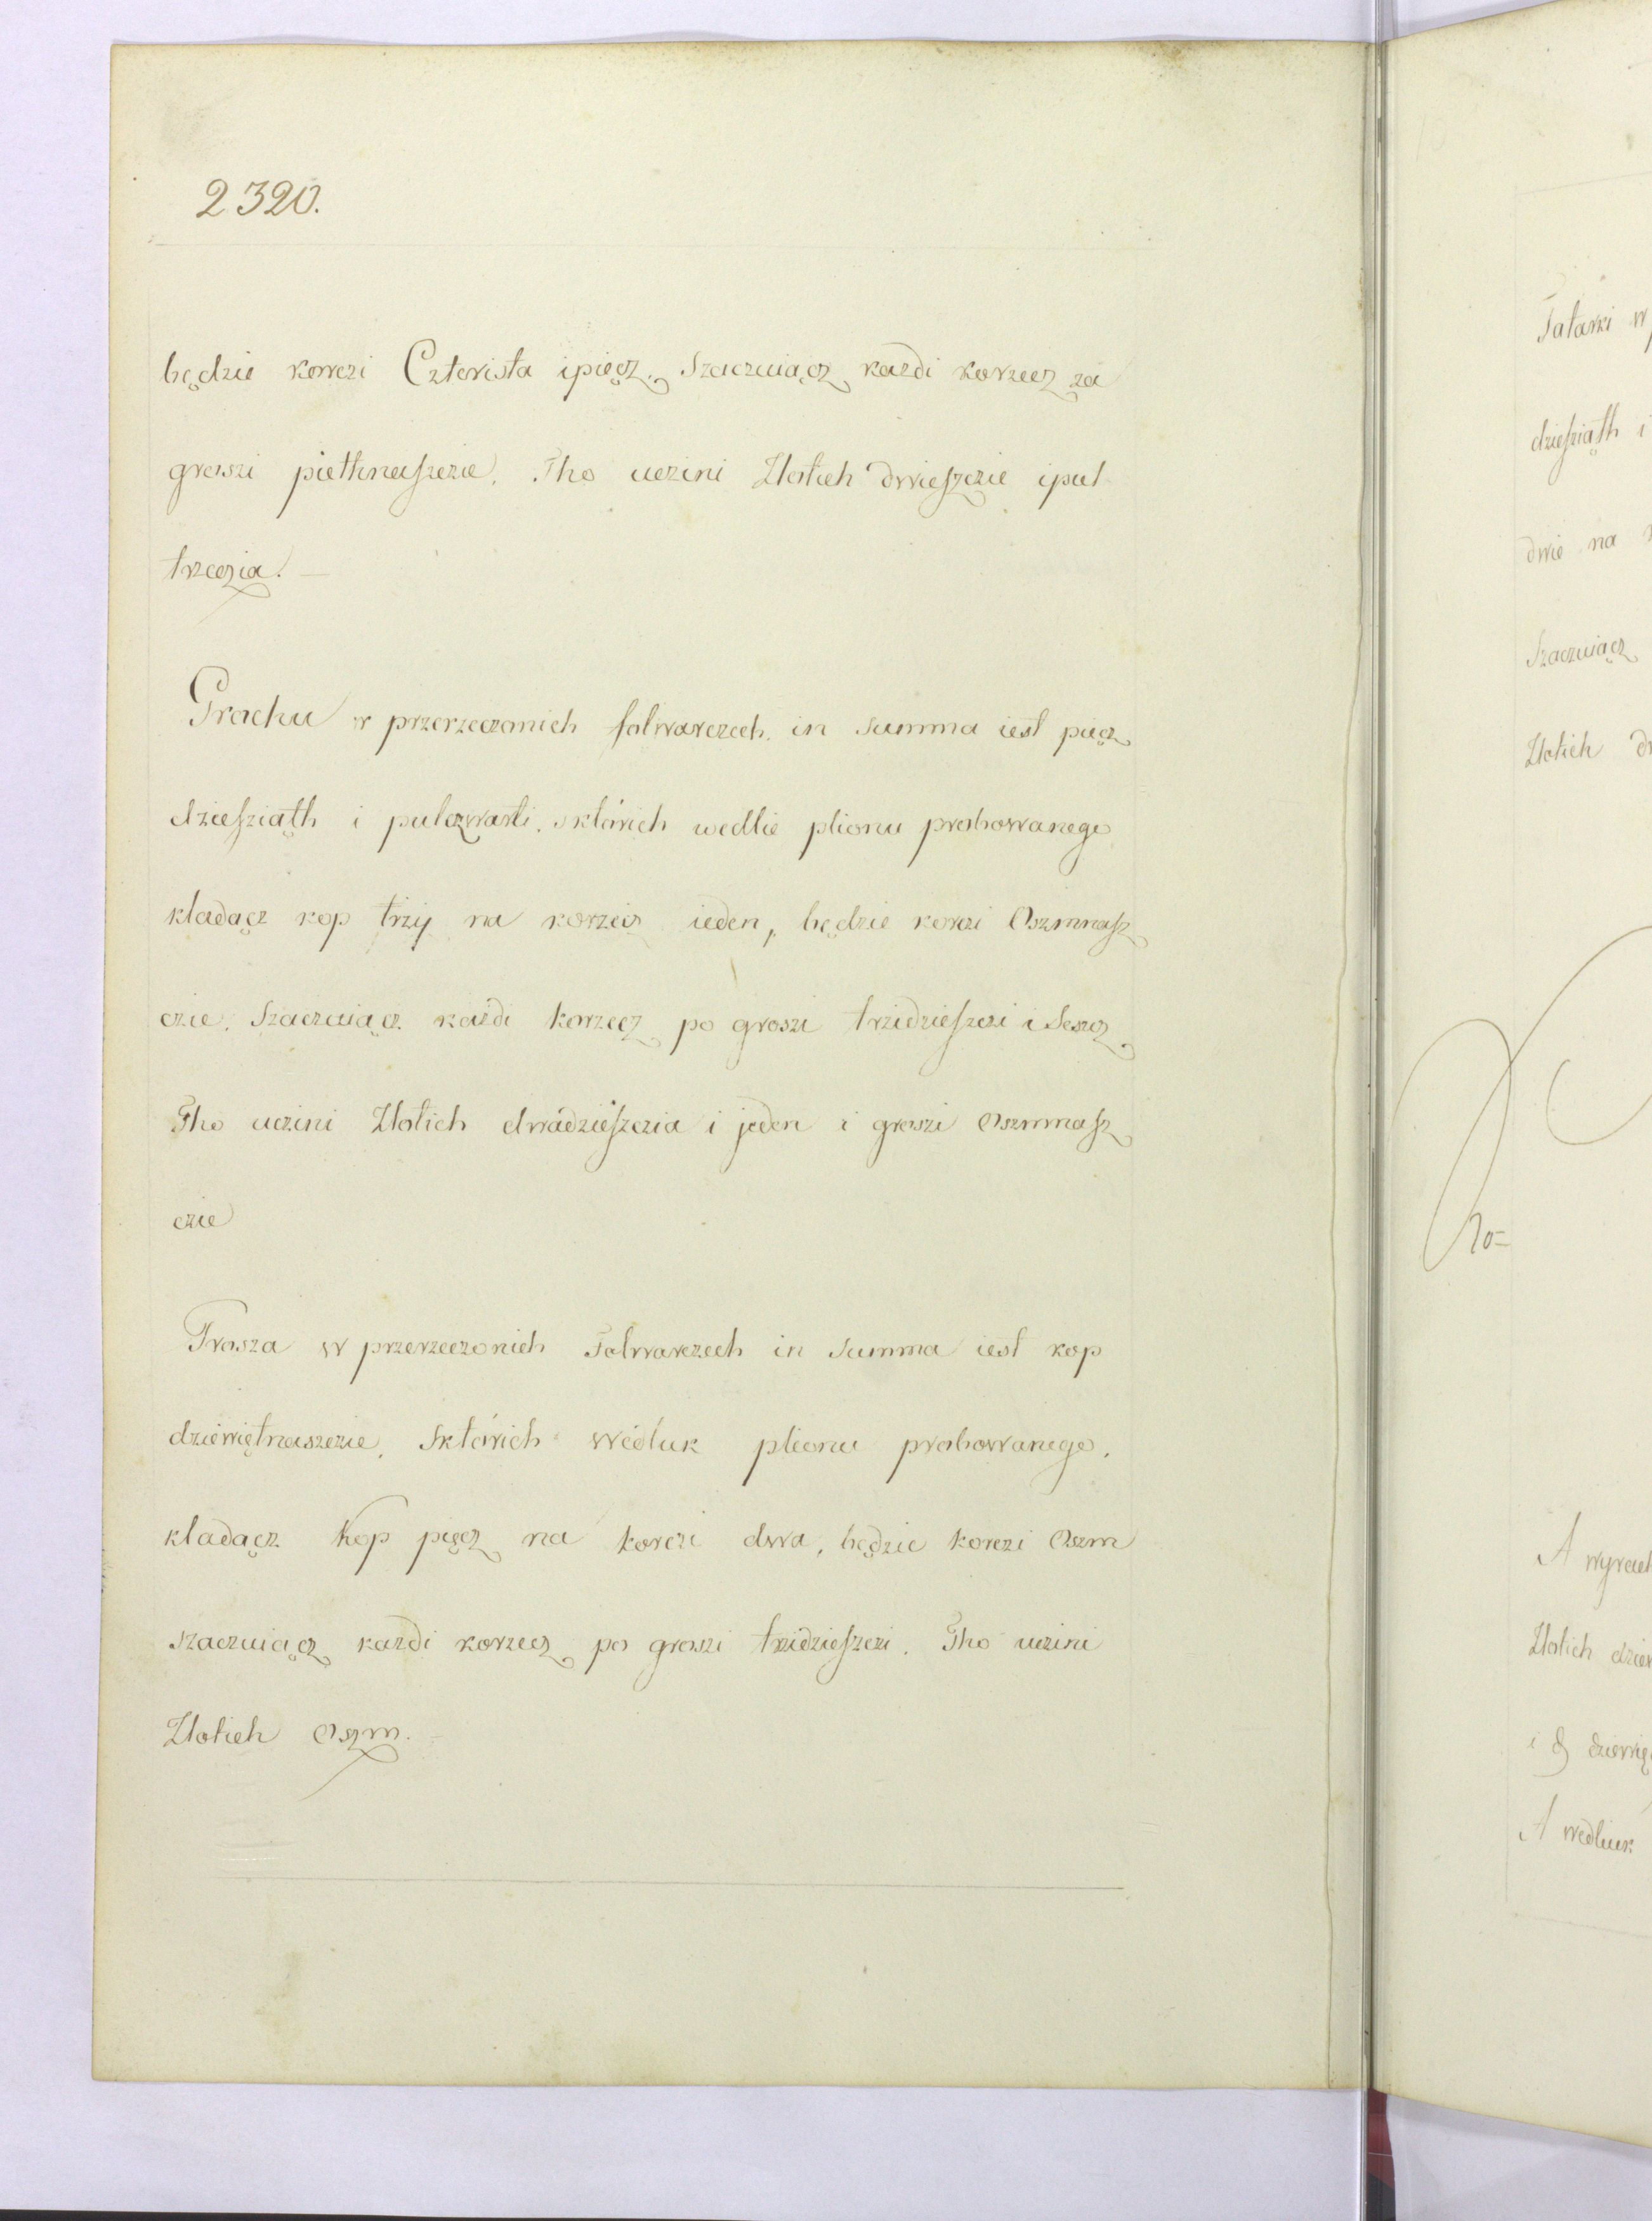 2320.
będzie korczi Czterista ipięcz. Szaczuiącz kazdi korzecz za
groszi piethnaszczie. Tho uczini Zlotich dwieszczie ipul
trzeczia. —
Grochu w przerzeczonich folwarczech in summa iest pięcz
dziesziąth i pulczwarti. sktórich wedlie plionu probowanego
kladącz kop trzÿ na korzecz ieden, będzie korczi Oszmnasz
czie. Szaczuiącz kazdi korzecz po groszi trzidzieszczi i Seszcz
Tho uczini Zlotich dwadzieszczia i jeden i groszi Oszmnasz
czie
Prosza w przerzeczonich Folwarczech in summa iest kop
dziewiętnaszczie, sktórich wedluk plionu probowanego.
kladącz kop pięcz na korczi dwa, będzie korczi Oszm
szaczuiącz kazdi korzecz po groszi trzidzieszczi. Tho uczini
Zlotich Oszm.
Tatarki w
dziesziąth i
dwie na
Szaczuiącz
Zlotich
A
Zlotich
i
A wedluk